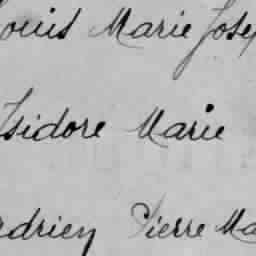 Louis Marie Jose
Isidore Marie
Adrien Pierre Ma